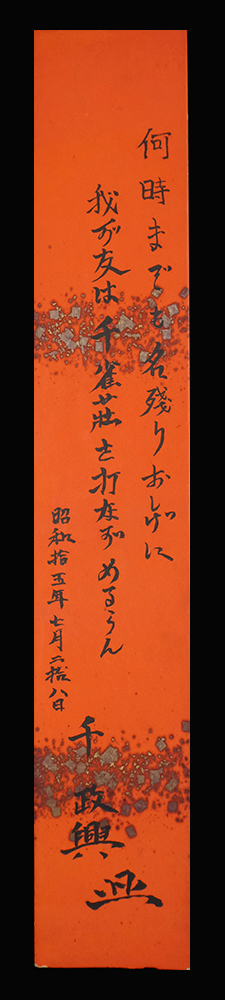 何時までも名残りおしげに
我が友は千雀荘を打ながめるらん
昭和拾五年七月二拾八日
千政興